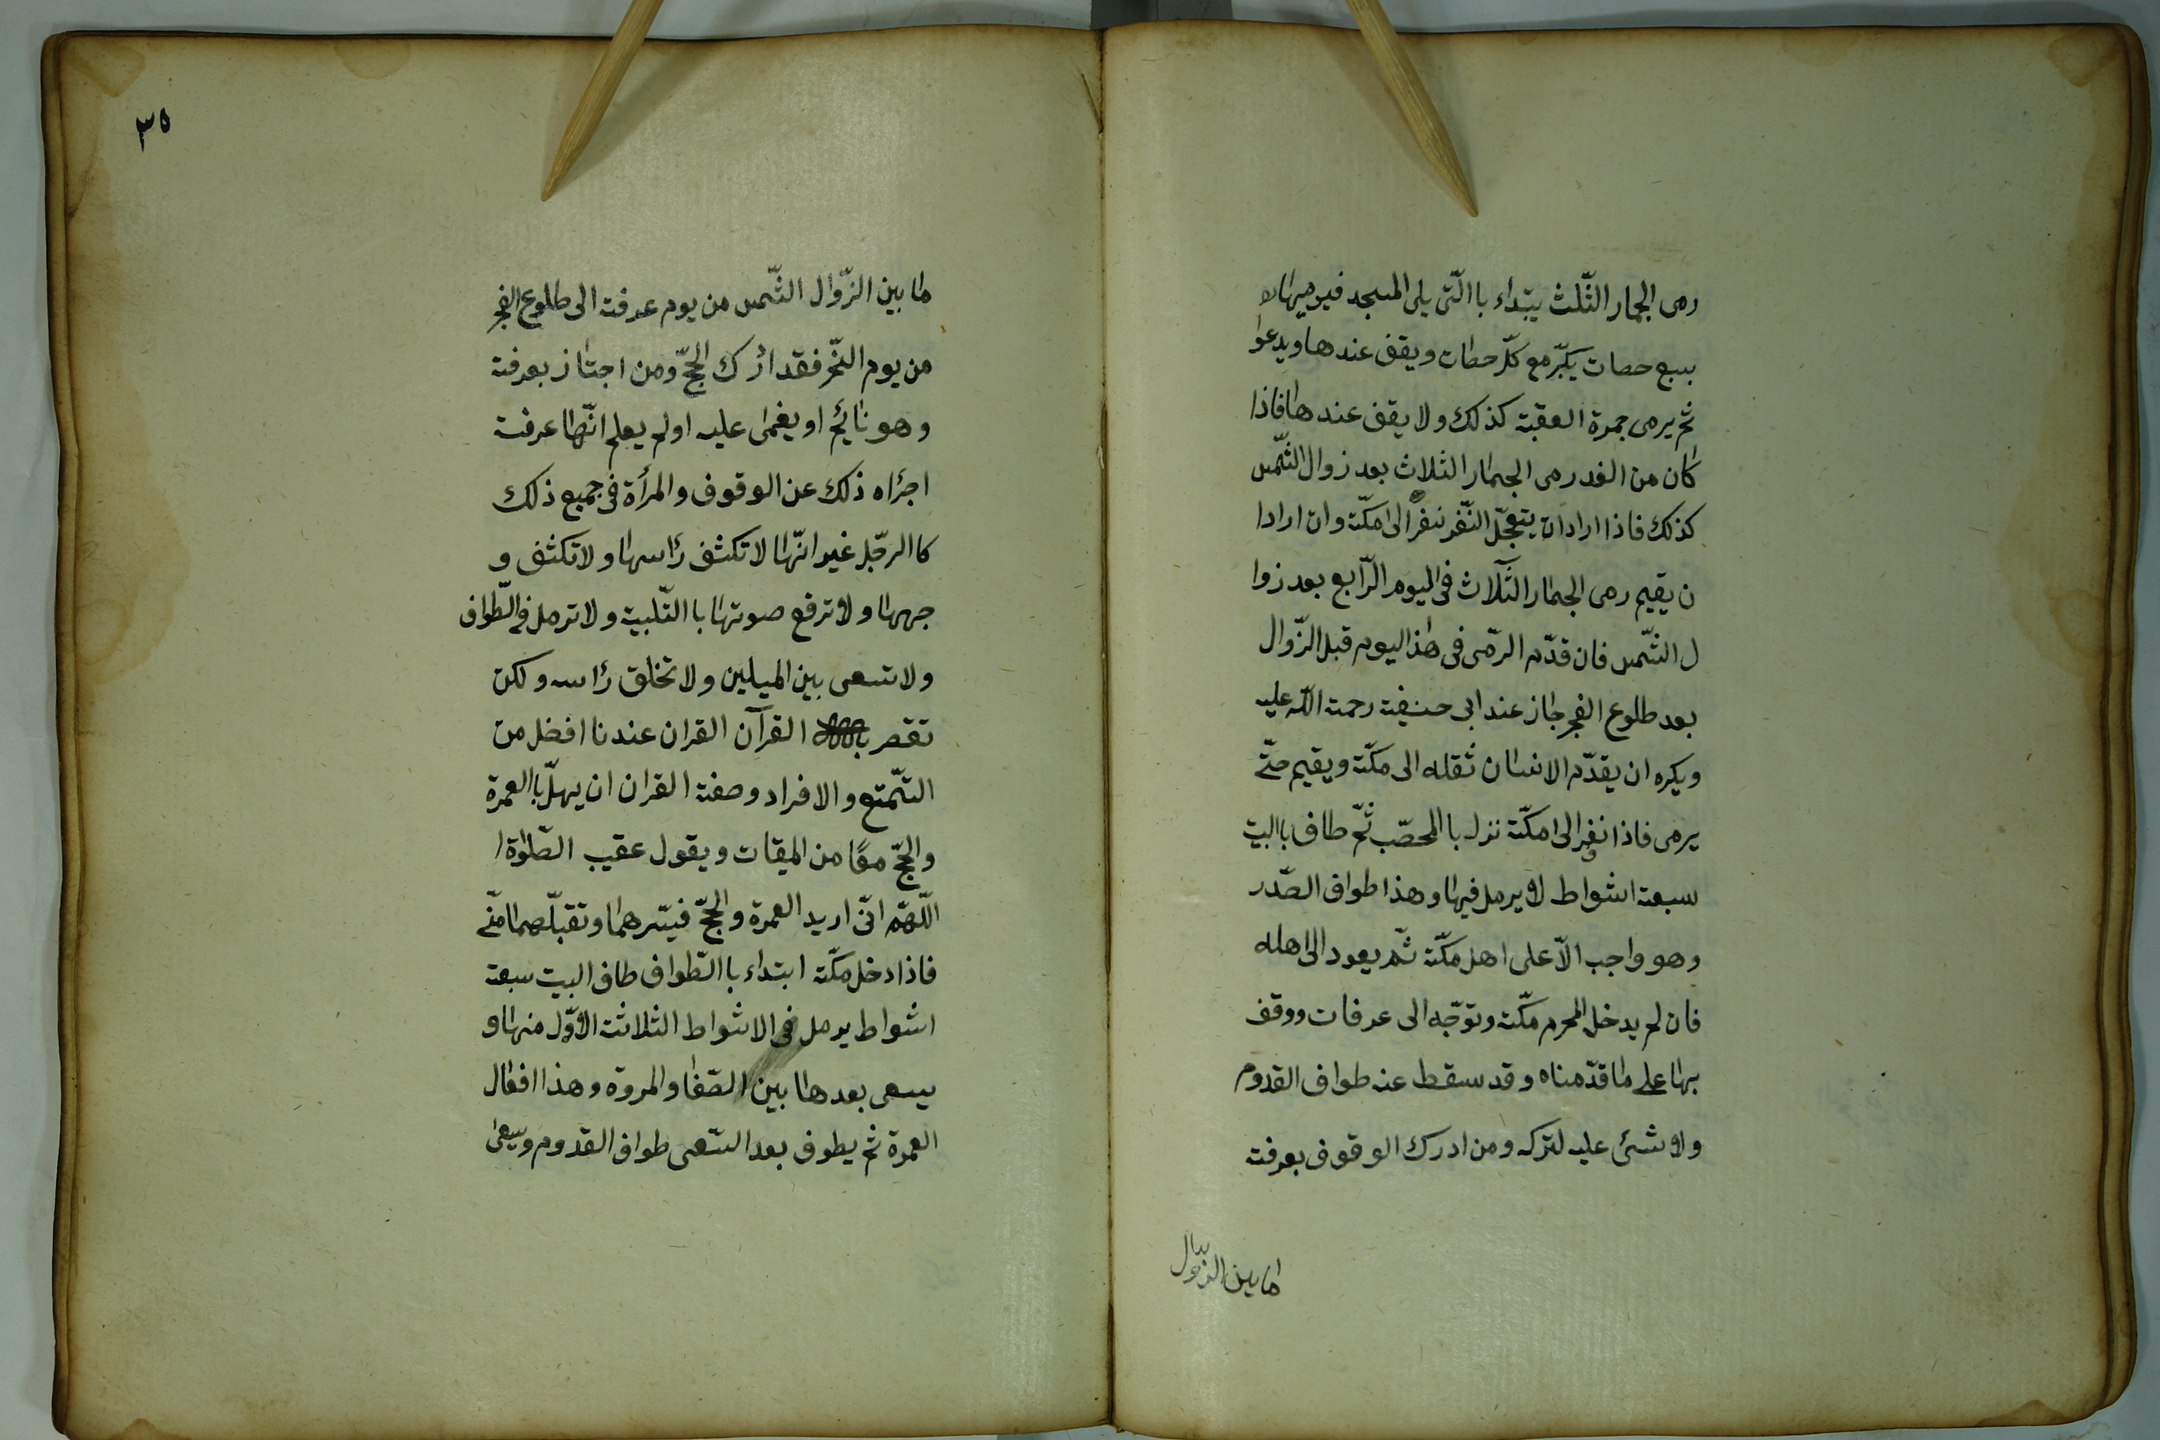 رمى الجمار الثّلث يبتداء با الّتى يلى المسجد فيرميها
بسبع حصات يكبّر مع كلّ حصات ويقف عندها ويدعوا
ثم يرمى جمرة العقبة كذلك ولا يقف عندها فاذا
كان من الغد رمى الجمار الثلاث بعد زوال الشّمس
كذلك فاذا اراد ان يتعجّل النّفر نفر الى مكّة وان ارادا
ن يقيم رمى الجمار الثّلاث فى اليوم الرّابع بعد زوا
ل الشّمس فان قدّم الرّمى فى هذا ليوم قبل الزّوال
بعد طلوع الفجر جاز عند ابى حنيفة رحمة اللّه عليه
ويكره ان يقدّم الانسان ثقله الى مكّة ويقيم حتّى
يرمى فاذا نفر الى مكّة نزل با المحصّب ثمّ طاف با البيت
سبعة اشواط لا يرمل فيها وهذا طواف الصّدر
وهو واجب الّا على اهل مكّة ثمّ يعود الى اهله
فان لم يدخل المحرم مكّة وتوجّه الى عرفات ووقف
بها على ما قدّمناه وقد سقط عنه طواف القدوم
ولا شئ عليه لتركه ومن ادرك الوقوف بعرفة
ما بين الزّوال
٣٥
ما بين الزّوال الشّمس من يوم عرفة الى طلوع الفجر
من يوم النّحر فقد ادرك الحجّ ومن اجتاز بعرفة
وهو نائم او يغمى عليه اولم يعلم انّها عرفة
اجزاه ذلك عن الوقوف والمرأة فى جميع ذلك
كا الرجل غير انّها لا تكشف رأسها ولا تكشف و
جهها ولا ترفع صوتها با التّلبية ولا ترمل فى الطّواف
ولا تسعى بين الميلين ولا تخلق رأسه ولكن
تقصر القرآن القران عندنا افضل من
التّمتع والافراد وصفة القران ان يهلّ با العمرة
والحجّ معًا من الميقات ويقول عقيب الصّلوة
اللّهمّ انّى اريد العمرة والحجّ فيسّرهما وتقبلّهما منّى
فاذا دخل مكّة ابتداء با الطّواف طاف البيت سبعة
اشواط يرمل فى الاشواط الثلاثة الاوّل منها و
يسعى بعدها بين الصّفا والمروة وهذا افعال
العمرة ثم يطوف بعد السّعى طواف القدوم ويسعى